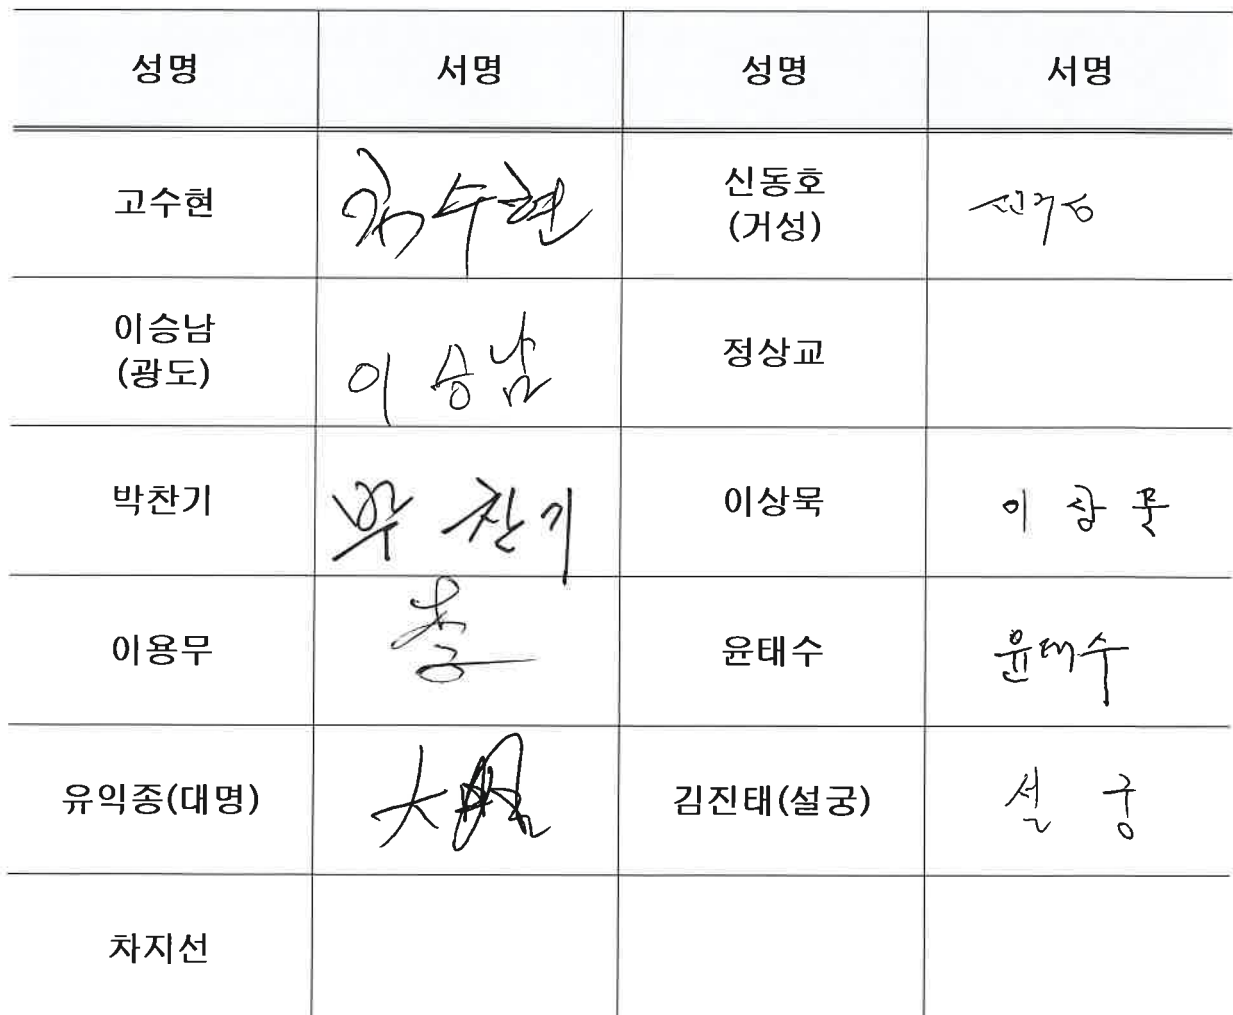 성명 서명 성명 서명
고수현 수현 신동호
(거성) 신거성
이승남
(광도) 이승남 정상교
박찬기 박찬기 이상묵 이상묵
이용무 윤태수 윤태수
유익종(대명) 大 김진태(설궁) 설궁
차지선